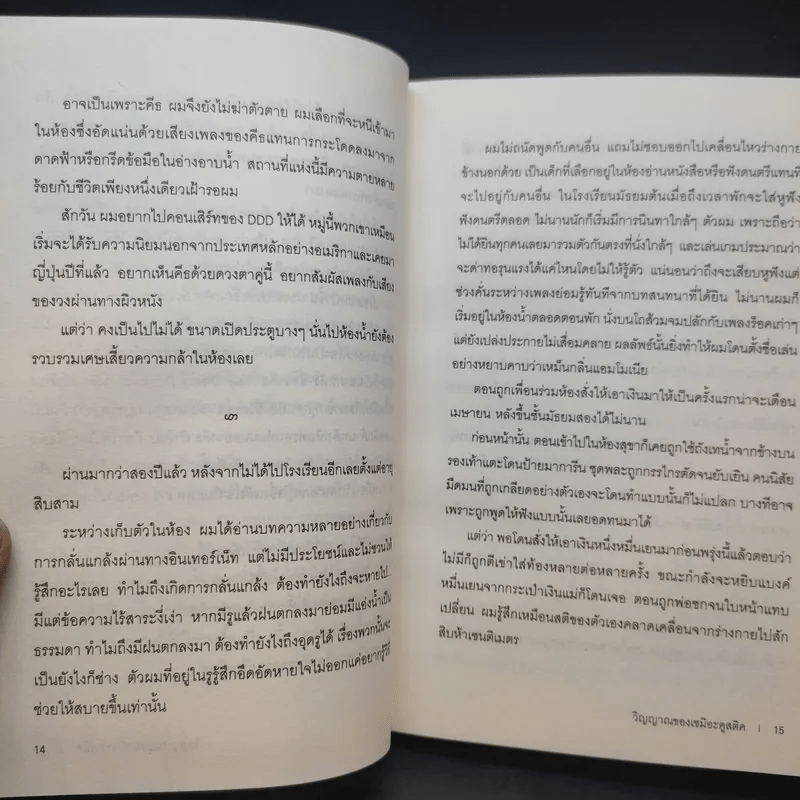 อาจเป็นเพราะคีธ ผมจึงยังไม่ฆ่าตัวตาย ผมเลือกที่จะหนีเข้ามา
ในห้องซึ่งอัดแน่นด้วยเสียงเพลงของคีธแทนการกระโดดลงมาจาก
ดาดฟ้าหรือกรีดข้อมือในอ่างอาบน้ำ สถานที่แห่งนี้มีความตายหลาย
ร้อยกับชีวิตเพียงหนึ่งเดียวเฝ้ารอผม
สักวัน ผมอยากไปคอนเสิร์ทของ DDD ให้ได้ หมู่นี้พวกเขาเหมือน
เริ่มจะได้รับความนิยมนอกจากประเทศหลักอย่างอเมริกาและเคยมา
ญี่ปุ่นปีที่แล้ว อยากเห็นคีธด้วยดวงตาคู่นี้ อยากสัมผัสเพลงกับเสียง
ของวงผ่านทางผิวหนัง
แต่ว่า คงเป็นไปไม่ได้ ขนาดเปิดประตูบางๆ นั่นไปห้องน้ำยังต้อง
รวบรวมเศษเสี้ยวความกล้าในห้องเลย
ผ่านมากว่าสองปีแล้ว หลังจากไม่ได้ไปโรงเรียนอีกเลยตั้งแต่อายุ
สิบสาม
ระหว่างเก็บตัวในห้อง ผมได้อ่านบทความหลายอย่างเกี่ยวกับ
การกลั่นแกล้งผ่านทางอินเทอร์เน็ท แต่ไม่มีประโยชน์และไม่ชวนให้
รู้สึกอะไรเลย ทำไมถึงเกิดการกลั่นแกล้ง ต้องทำยังไงถึงจะหายไป...
มีแต่ข้อความไร้สาระงี่เง่า หากมีรูแล้วฝนตกลงมาย่อมมีแอ่งน้ำเป็น
ธรรมดา ทำไมถึงมีฝนตกลงมา ต้องทำยังไงถึงอุดรูได้ เรื่องพวกนั้นจะ
เป็นยังไงก็ช่าง ตัวผมที่อยู่ในรูรู้สึกอึดอัดหายใจไม่ออกแค่อยากรู้วิธี
ช่วยให้สบายขึ้นเท่านั้น
14
ผมไม่ถนัดพูดกับคนอื่น แถมไม่ชอบออกไปเคลื่อนไหวร่างกาย
ข้างนอกด้วย เป็นเด็กที่เลือกอยู่ในห้องอ่านหนังสือหรือฟังดนตรีแทนที่
จะไปอยู่กับคนอื่น ในโรงเรียนมัธยมต้นเมื่อถึงเวลาพักจะใส่หูฟัง
ฟังดนตรีตลอด ไม่นานนักก็เริ่มมีการนินทาใกล้ๆ ตัวผม เพราะถือว่า
ไม่ได้ยินทุกคนเลยมารวมตัวกันตรงที่นั่งใกล้ๆ และเล่นเกมประมาณว่า
จะด่าทอรุนแรงได้แค่ไหนโดยไม่ให้รู้ตัว แน่นอนว่าถึงจะเสียบหูฟังแต่
ช่วงคั่นระหว่างเพลงย่อมรู้ทันทีจากบทสนทนาที่ได้ยิน ไม่นานผมก็
เริ่มอยู่ในห้องน้ำตลอดตอนพัก นั่งบนโถส้วมจมปลักกับเพลงร็อคเก่าๆ
แต่ยังเปล่งประกายไม่เสื่อมคลาย ผลลัพธ์นั้นยิ่งทำให้ผมโดนตั้งชื่อเล่น
อย่างหยาบคาบว่าเหม็นกลิ่นแอมโมเนีย
ตอนถูกเพื่อนร่วมห้องสั่งให้เอาเงินมาให้เป็นครั้งแรกน่าจะเดือน
เมษายน หลังขึ้นชั้นมัธยมสองได้ไม่นาน
ก่อนหน้านั้น ตอนเข้าไปในห้องสุขาก็เคยถูกใช้ถังเทน้ำจากข้างบน
รองเท้าแตะโดนป้ายมาการีน ชุดพละถูกกรรไกรตัดจนยับเยิน คนนิสัย
มืดมนที่ถูกเกลียดอย่างตัวเองจะโดนทำแบบนั้นก็ไม่แปลก บางทีอาจ
เพราะถูกพูดให้ฟังแบบนั้นเลยอดทนมาได้
แต่ว่า พอโดนสั่งให้เอาเงินหนึ่งหมื่นเยนมาก่อนพรุ่งนี้แล้วตอบว่า
ไม่มีก็ถูกตีเข่าใส่ท้องหลายต่อหลายครั้ง ขณะกำลังจะหยิบแบงค์
หมื่นเยนจากกระเป๋าเงินแม่ก็โดนเจอ ตอนถูกพ่อชกจนใบหน้าแทบ
เปลี่ยน ผมรู้สึกเหมือนสติของตัวเองคลาดเคลื่อนจากร่างกายไปสัก
สิบห้าเซนติเมตร
วิญญาณของเซมิอะคูสติค | 15